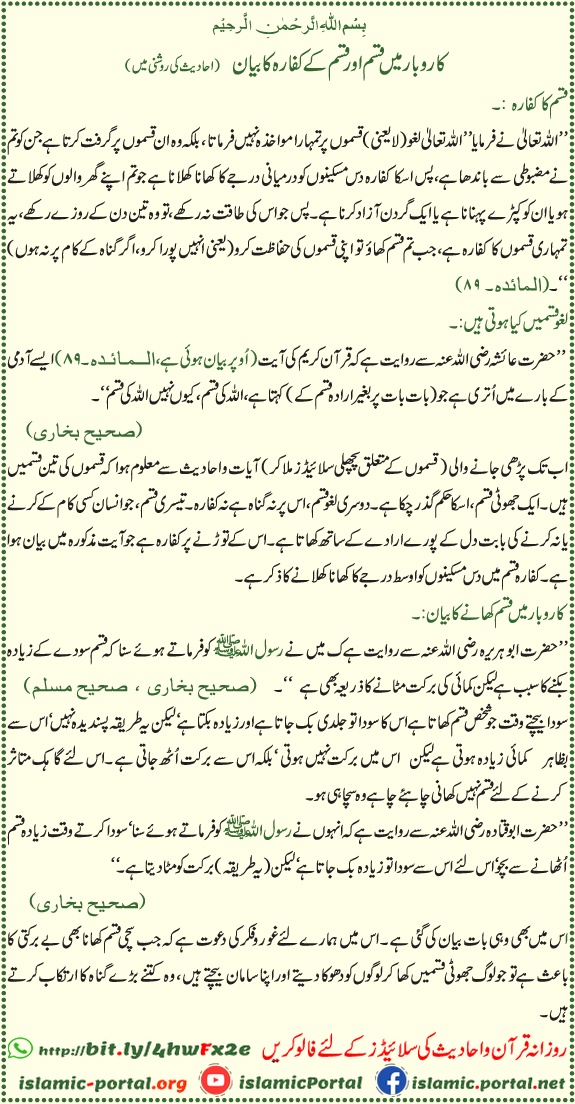 بِسْمِ اللهِ الرَّحْمٰنِ الرَّحِيْمِ
کاروبار میں قسم اور قسم کے کفارہ کا بیان (احادیث کی روشنی میں)
قسم کا کفارہ :۔
’’اللہ تعالیٰ نے فرمایا’’اللہ تعالیٰ لغو (لا یعنی) قسموں پر تمہارا مواخذہ نہیں فرماتا، بلکہ وہ ان قسموں پر گرفت کرتا ہے جن کو تم
نے مضبوطی سے باندھا ہے، پس اسکا کفارہ دس مسکینوں کو درمیانی درجے کا کھانا کھلانا ہے جو تم اپنے گھر والوں کو کھلاتے
ہو یا ان کو کپڑے پہنانا ہے یا ایک گردن آزاد کرنا ہے۔ پس جو اس کی طاقت نہ رکھے، تو وہ تین دن کے روزے رکھے، یہ
تمہاری قسموں کا کفارہ ہے، جب تم قسم کھاؤ تو اپنی قسموں کی حفاظت کرو (یعنی انہیں پورا کرو، اگر گناہ کے کام پر نہ ہوں)
‘‘۔ (المائدہ۔ ۸۹)
لغو قسمیں کیا ہوتی ہیں:۔
’’حضرت عائشہ رضی اللہ عنہ سے روایت ہے کہ قرآن کریم کی آیت (اُوپر بیان ہوئی ہے، المائدہ۔۸۹) ایسے آدمی
کے بارے میں اُتری ہے جو (بات بات پر بغیر ارادہ قسم کے) کہتا ہے، اللہ کی قسم، کیوں نہیں اللہ کی قسم‘‘۔
(صحیح بخاری)
اب تک پڑھی جانے والی (قسموں کے متعلق پچھلی سلائیڈز ملا کر) آیات و احادیث سے معلوم ہوا کہ قسموں کی تین قسمیں
ہیں۔ ایک جھوٹی قسم، اسکا حکم گذر چکا ہے۔ دوسری لغو قسم، اس پر نہ گناہ ہے نہ کفارہ۔ تیسری قسم، جو انسان کسی کام کے کرنے
یا نہ کرنے کی بابت دل کے پورے ارادے کے ساتھ کھاتا ہے۔ اس کے توڑنے پر کفارہ ہے جو آیت مذکورہ میں بیان ہوا
ہے۔ کفارہ قسم میں دس مسکینوں کو اوسط درجے کا کھانا کھلانے کا ذکر ہے۔
کاروبار میں قسم کھانے کا بیان:۔
’’حضرت ابو ہریرہ رضی اللہ عنہ سے روایت ہے ک میں نے رسول اللہ ﷺ کو فرماتے ہوئے سنا کہ قسم سودے کے زیادہ
بکنے کا سبب ہے لیکن کمائی کی برکت مٹانے کا ذریعہ بھی ہے ‘‘۔ (صحیح بخاری ، صحیح مسلم)
سودا بیچتے وقت جو شخص قسم کھاتا ہے اس کا سودا تو جلدی بک جاتا ہے اور زیادہ بکتا ہے‘ لیکن یہ طریقہ پسندیدہ نہیں‘ اس سے
بظاہر کمائی زیادہ ہوتی ہے لیکن اس میں برکت نہیں ہوتی‘ بلکہ اس سے برکت اُٹھ جاتی ہے۔ اس لئے گاہک متاثر
کرنے کے لئے قسم نہیں کھانی چاہئے چاہے وہ سچا ہی ہو۔
’’حضرت ابو قتادہ رضی اللہ عنہ سے روایت ہے کہ انہوں نے رسول اللہ ﷺ کو فرماتے ہوئے سنا‘ سودا کرتے وقت زیادہ قسم
اُٹھانے سے بچو‘ اس لئے اس سے سودا تو زیادہ بک جاتا ہے‘ لیکن (یہ طریقہ) برکت کو مٹا دیتا ہے۔‘‘
(صحیح بخاری)
اس میں بھی وہی بات بیان کی گئی ہے۔ اس میں ہمارے لئے غور و فکر کی دعوت ہے کہ جب سچی قسم کھانا بھی بے برکتی کا
باعث ہے تو جو لوگ جھوٹی قسمیں کھا کر لوگوں کو دھوکا دیتے اور اپنا سامان بیچتے ہیں، وہ کتنے بڑے گناہ کا ارتکاب کرتے
ہیں۔
روزانہ قرآن و احادیث کی سلائیڈز کے لئے فالو کریں http://bit.ly/4hwFx2e
islamic-portal.org islamicPortal islamic.portal.net